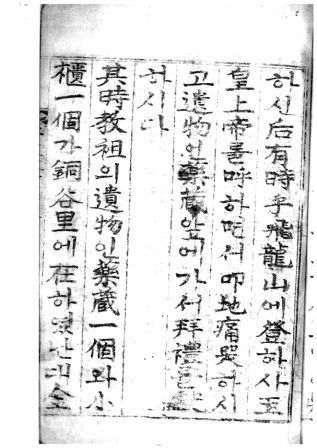 하신后有時乎飛龍山에登하사玉
皇上帝를呼하면서叩地痛哭하시
고遺物인藥藏앞에가서拜禮를
하시다
其時教祖의遺物인藥藏一個와小
櫃一個가銅谷里에在하얏난대全